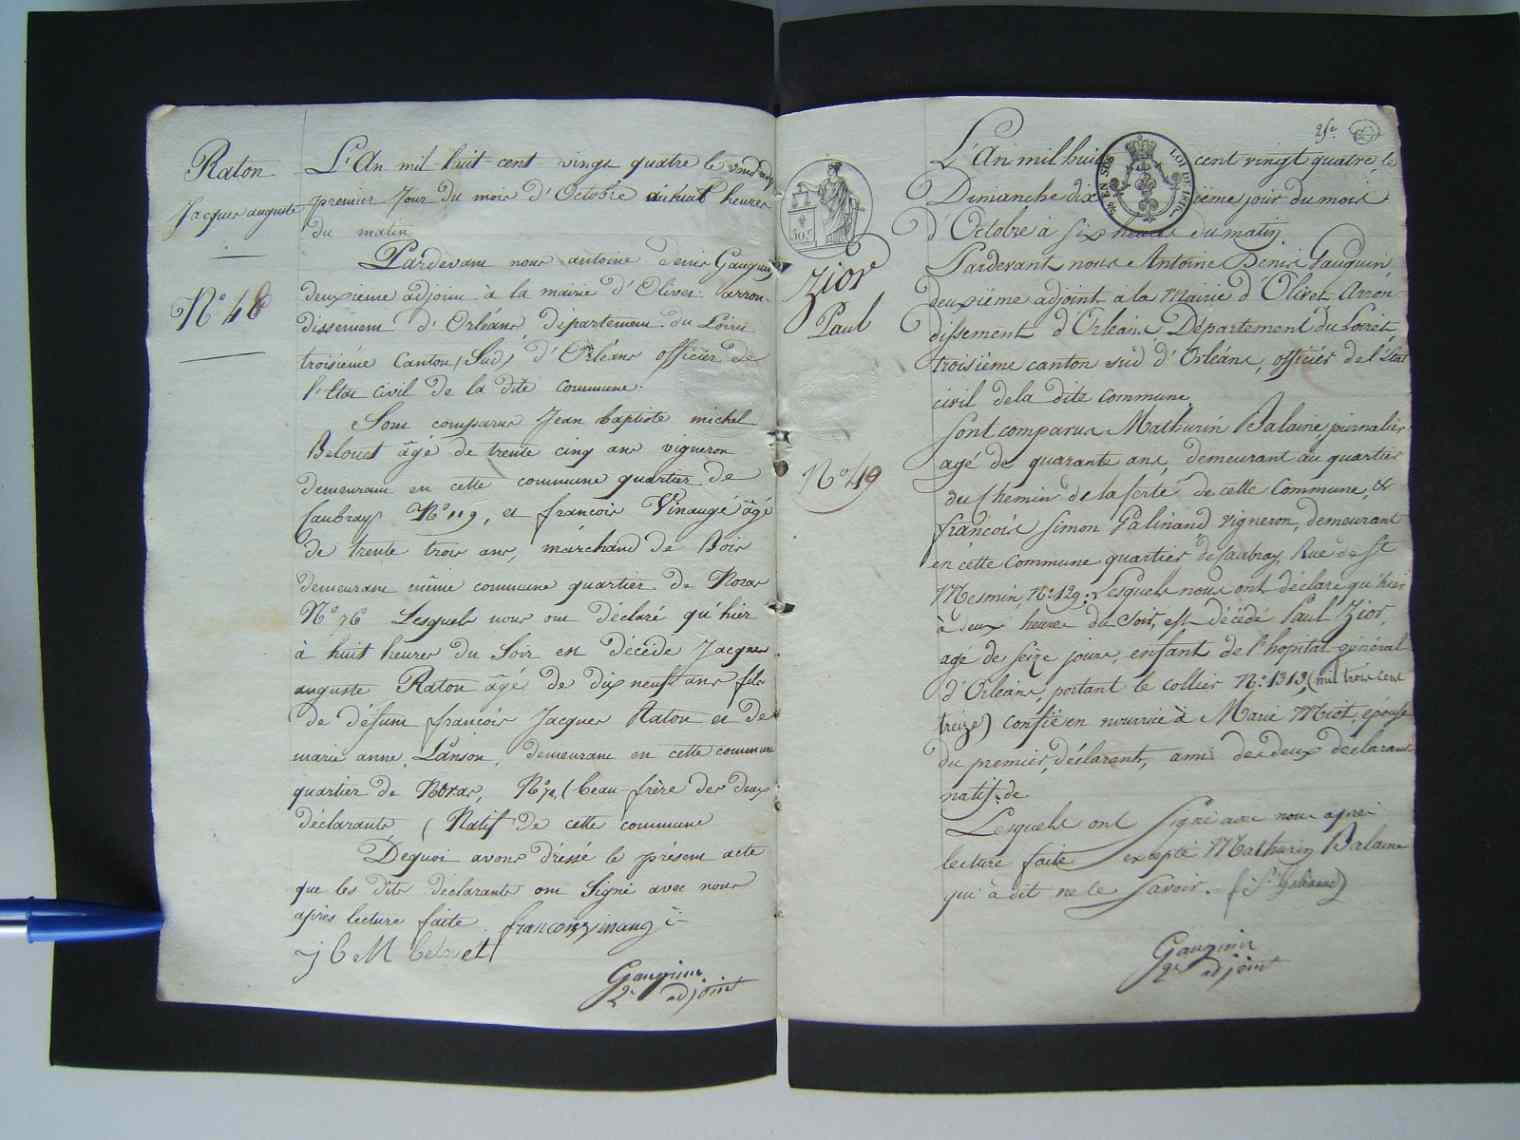 Raton
Jacques auguste
N° 48
L'An mil huit cent vingt quatre le vendredy
premier Jour du mois d'Octobre à huit heures
du matin
Pardevant nous antoine denis Gauguin
deuxieme adjoint à la mairie d'Olivet arron-
dissement d'Orléans département du Loiret
troisième Canton (Sud) d'Orléans officier de
l'Etat civil de la dite commune.
Sont comparus Jean baptiste michel
Belouet âgé de trente cinq ans vigneron
demeurant en cette commune quartier de
Caubray N° 119, et francois Vinaugé âgé
de trente trois ans, marchand de Bois
demeurant même commune quartier de
N° 76 Lesquels nous ont déclaré qu'hier
à huit heures du Soir est décédé Jacques
auguste Raton âgé de dix neuf ans fils
de défunt francois Jacques Raton et de
marie anne Lanson, demeurant en cette commune
quartier de (beau frère des deux
déclarants ( Natif de cette commune
Dequoi avons dressé le présent acte
que les dits déclarants ont Signé avec nous
après lecture faite. francois vinaugé
j b M belouet
Gauguin
2e adjoint
2fr
505
Zior
Paul
N° 49
LOI DE 1816
L'An mil huit cent vingt quatre, le
Dimanche dix ième jour du mois
d'Octobre à six heures du matin
Pardevant nous Antoine Denis Gauguin
deuxiième adjoint à la Mairie d'Olivet Arron-
dissement d'Orléans Département du Loiret
troisiième canton sud d'Orléans, officier de l'état
civil de la dite commune.
Sont comparus Mathurin Balaine journalier
agé de quarante ans, demeurant au quartier
du Chemin de la ferté de cette Commune, &
francois Simon Galinand vigneron, demeurant
en cette Commune quartier de Caubray, Rue de St
Mesmin, N° 129: Lesquels nous ont déclaré qu'hier
à deux heures du Soir, est décédé Paul Zior,
agé de seize jours, enfant de l'hopital général
d'Orléans, portant le collier N° 1313, (mil trois cent
treize) confié en nourrice à Marie Miot, épouse
du premier déclarant, ami des deux déclarant
natif de
Lesquels ont Signé avec nous après
lecture faite excepté Mathurin Balaine
qui a dit ne le Savoir. f S Galinand
Gauguin
2e adjoint